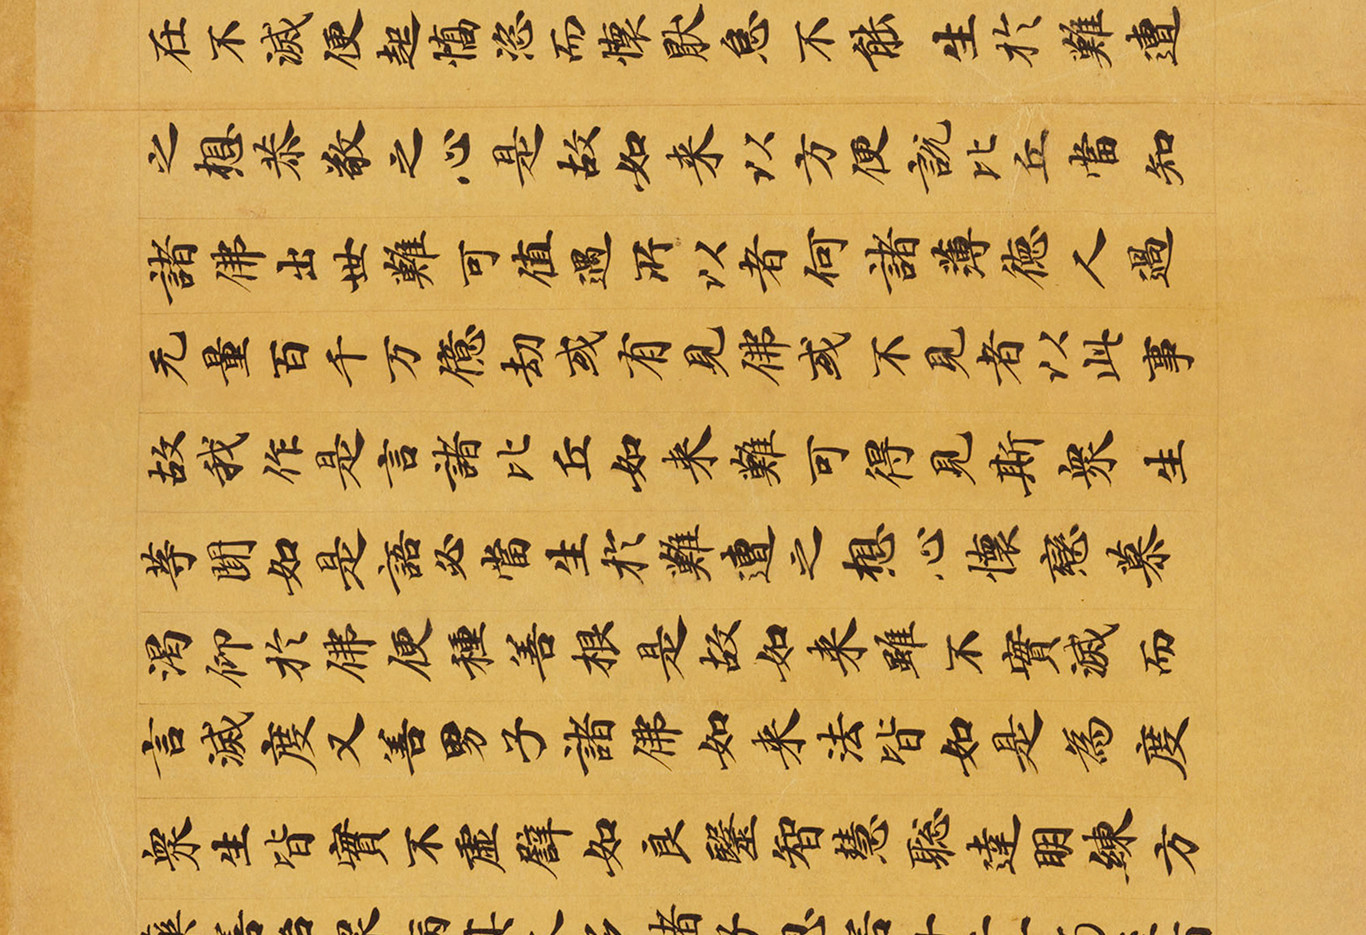 在不滅便起憍恣而懷厭怠不能生於難遭
之想恭敬之心是故如来以方便説比丘當知
諸佛出世難可值遇所以者何諸薄德人過
无量百千万億劫或有見佛或不見者以此事
故我作是言諸比丘如来難可得見斯衆生
等聞如是語必當生於難遭之想心懷戀慕
渴仰於佛便種善根是故如来雖不實滅而
言滅度又善男子諸佛如来法皆如是為度
衆生皆實不虛譬如良毉智慧聰達明練方